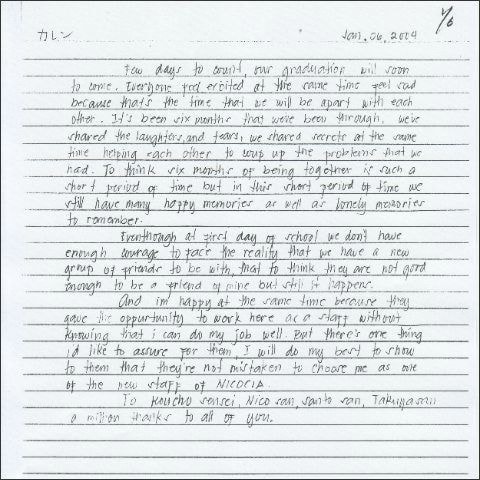 1/6
カレン Jan. 06, 2004
Few days to count, our graduation will soon
to come. Everyone feel exited at the same time feel sad
because that's the time that we will be apart with each
other. It's been six months that were been through, we've
shared the laughters, and tears, we shared secrets at the same
time helping each other to coup up the problems that we
had. To think six months of being together is such a
short period of time but in this short period of time we
still have many happy memories as well as lonely memories
to remember.
Eventhough at first day of school we don't have
enough courage to face the reality that we have a new
group of friends to be with, that to think they are not good
enough to be a friend of mine but still it happens.
And im happy at the same time because they
gave the opportunity to work here as a staff without
knowing that i can do my job well. But there's one thing
i'd like to assure for them, I will do my best to show
to them that they're not mistaken to choose me as one
of the new staff of NICOCIA.
To Koucho sensei, Nico san, Santo san, Takuya san
a million thanks to all of you.